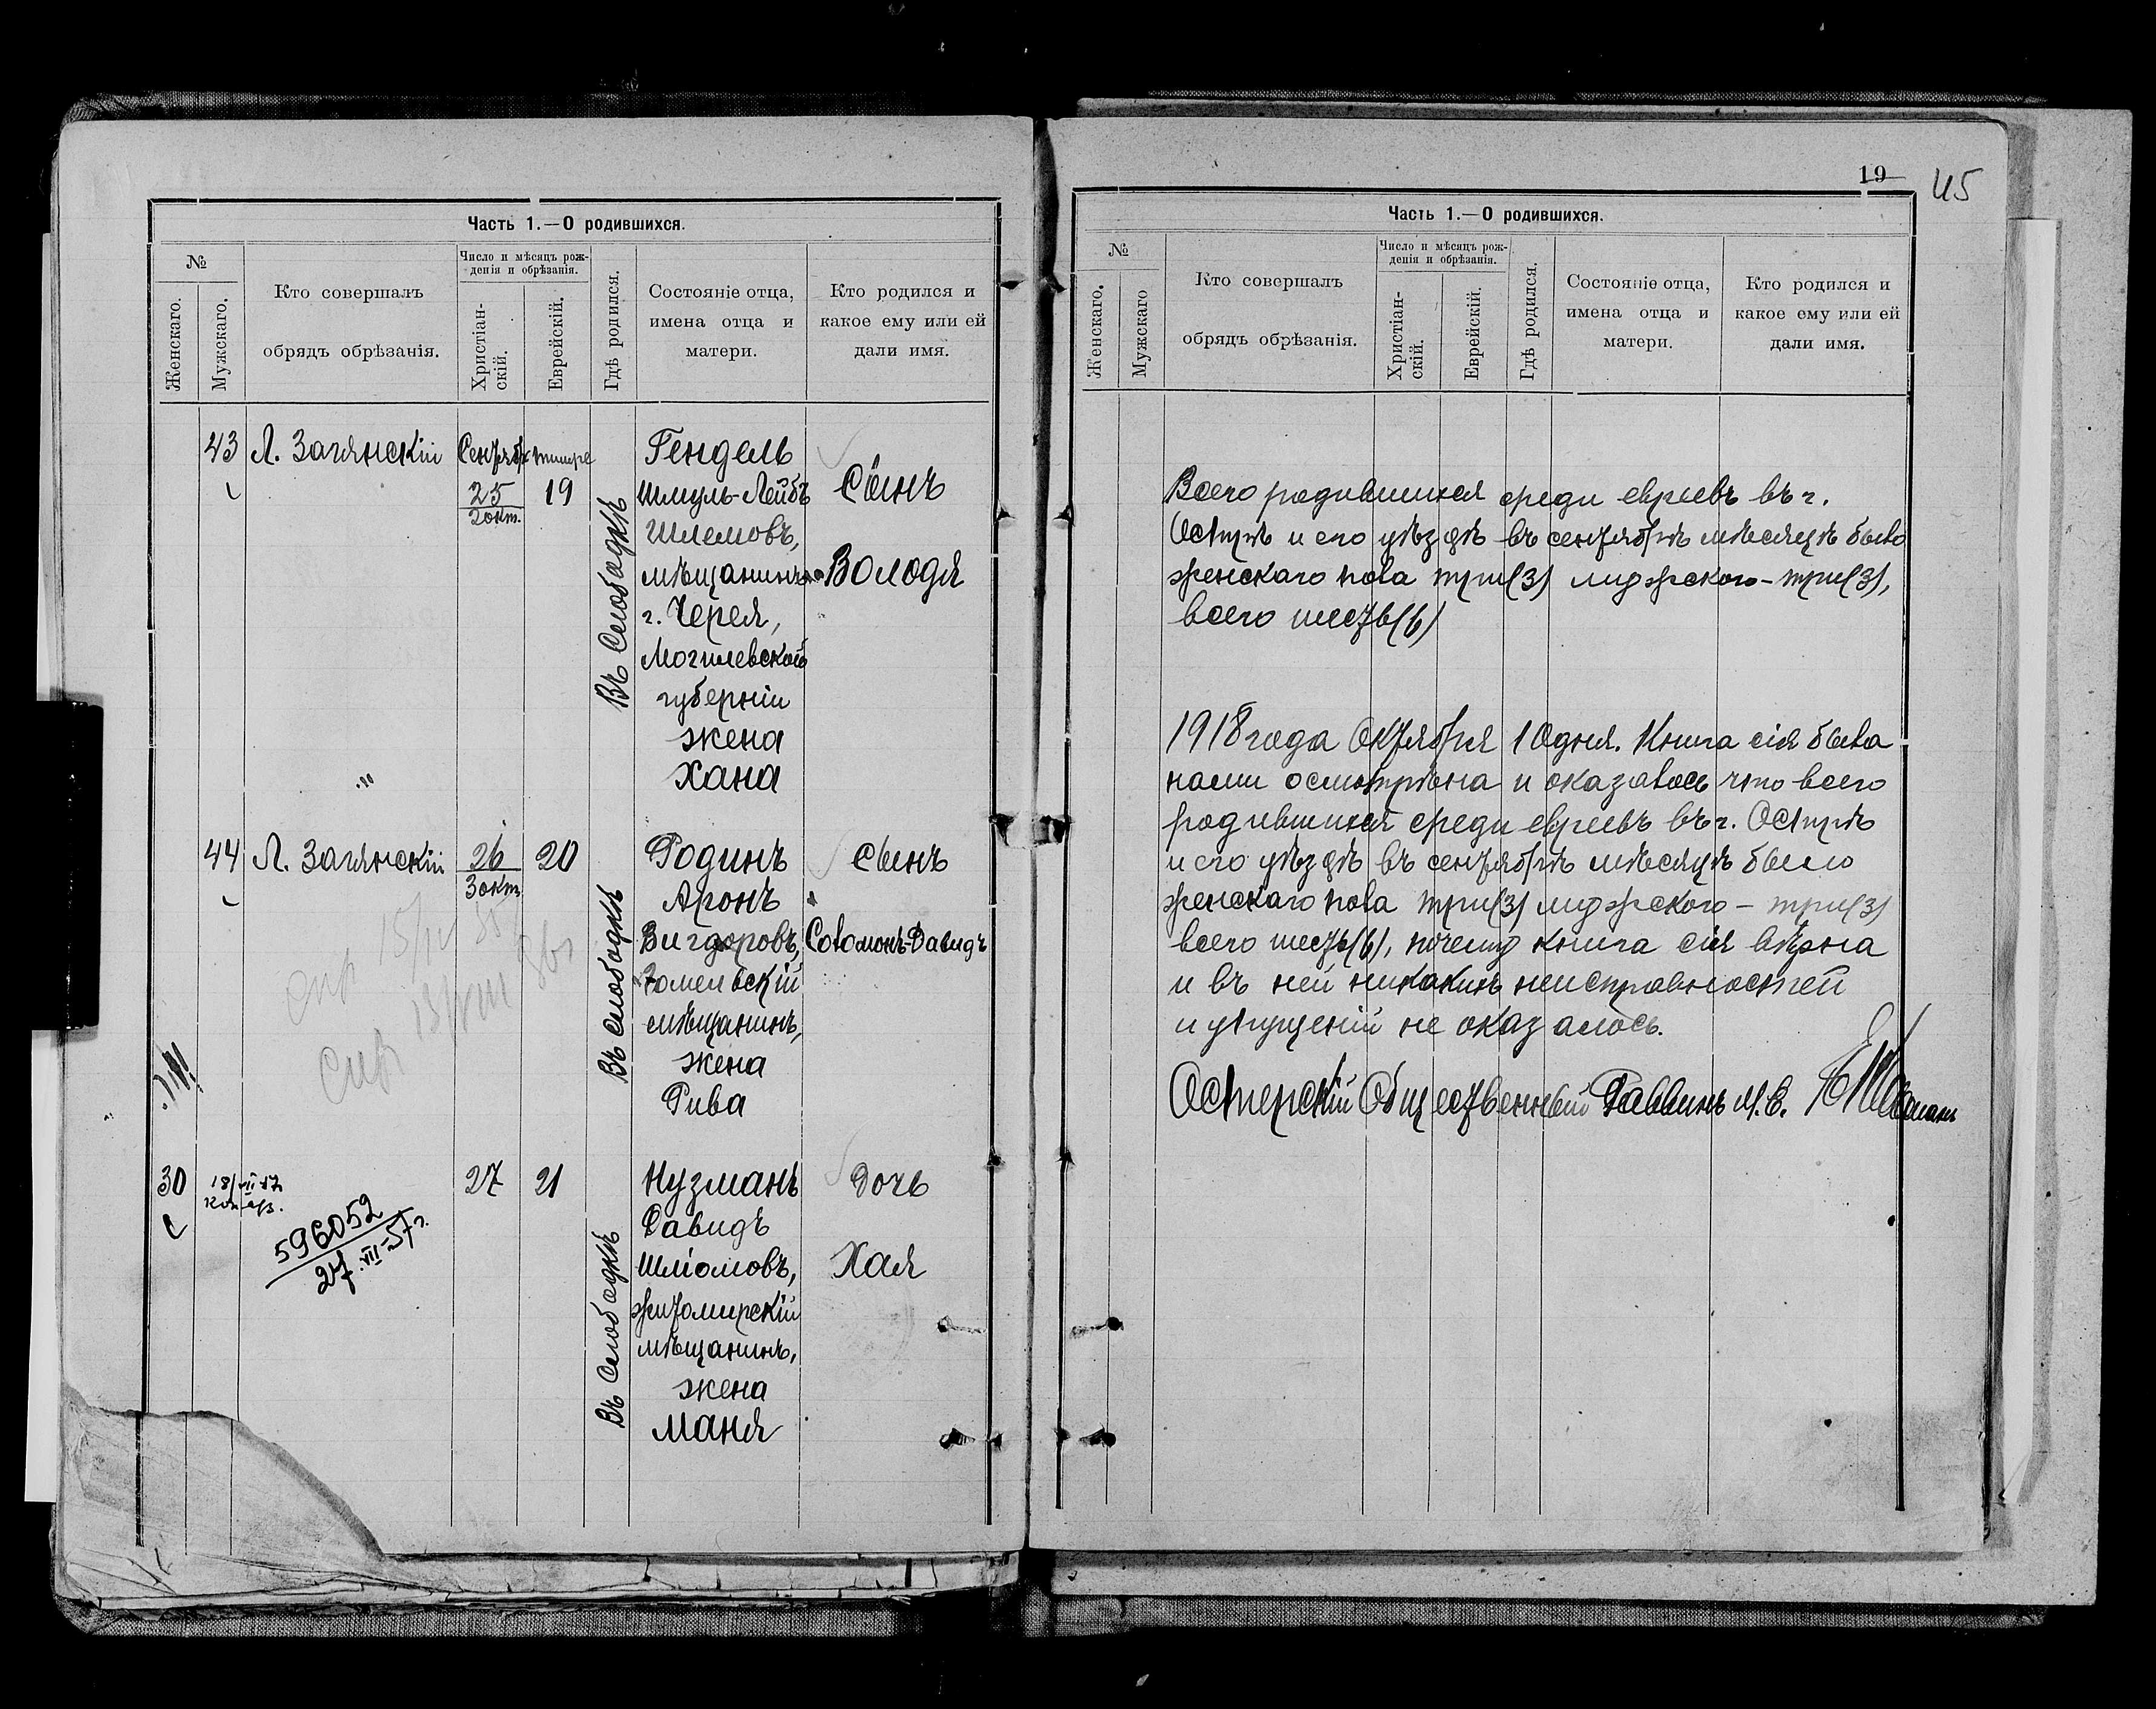 Часть 1.—О родившихся.
№
Женскаго.
Мужскаго.
Кто совершалъ
обрядъ обрѣзанія.
Число и мѣсяцъ рож-
денія и обрѣзанія.
Христіан-
скій.
Еврейскій.
Гдѣ родился.
Состояніе отца,
имена отца и
матери.
Кто родился и
какое ему или ей
дали имя.
43 Л. Загянскій Сентябр Тишре Гендель
25 19 Шмуль-Лейбъ Сынъ
2 окт.
Въ Слободкѣ
Шлемовъ,
мѣщанинъ Володя
г. Черея,
Могилевской
губерніи
жена
Хана
44 Л. Загянскій 26 20 Родинъ сынъ
3 окт.
Въ Слободкѣ
Аронъ
Вигдоровъ, Соломонъ-Давидъ
Гомельскій
мѣщанинъ,
жена
Рива
30 18/VII-57 27 21 Кузманъ Дочь
596052
27.VII-57г.
Въ Слободкѣ
Давидъ
Шліомовъ, Хая
житомирскій
мѣщанинъ,
жена
Маня
19 45
Часть 1.—О родившихся.
№
Женскаго.
Мужскаго
Кто совершалъ
обрядъ обрѣзанія.
Число и мѣсяцъ рож-
денія и обрѣзанія.
Христіан-
скій.
Еврейскій.
Гдѣ родился.
Состояніе отца,
имена отца и
матери.
Кто родился и
какое ему или ей
дали имя.
Всего родившихся среди евреевъ въ г.
Острѣ и его уѣздѣ въ сентябрѣ мѣсяцѣ было
женскаго пола три(3) мужского-три(3),
всего шесть(6)
1918 года Октября 10 дня. Книга сія была
нами осмотрѣна и оказалось что всего
родившихся среди евреевъ въ г. Острѣ
и его уѣздѣ въ сентябрѣ мѣсяцѣ было
женскаго пола три(3) мужского-три(3)
всего шесть(6), почему книга сія вѣрна
и въ ней никакихъ неисправностей
и упущеній не оказалось.
Остерскій Общественный Раввинъ М.В.